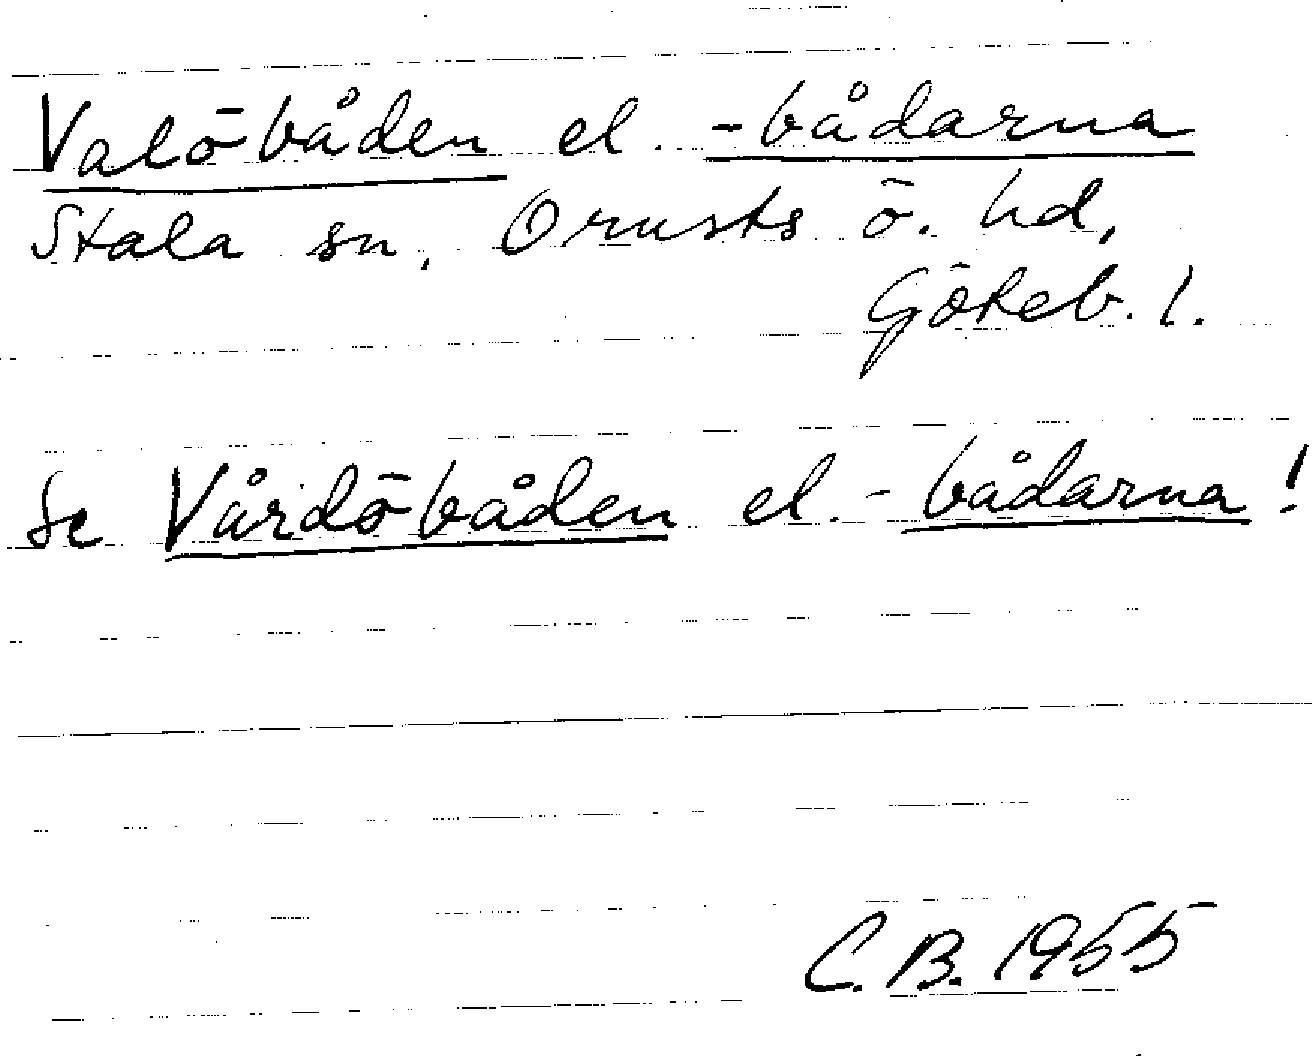 Valöbåden el. -bådarna
Stala sn, Orusts ö. hd,
Göteb. l.
Se Vårdöbåden el. -bådarna!
C.B. 1955